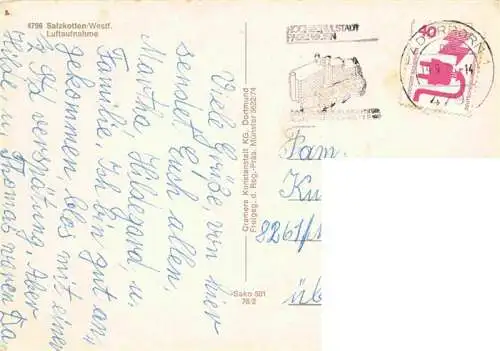 4796 Salzkotten/Westf.
Luftaufnahme
Viele Grüße, von hier
sendet Euch allen,
Martha, Hildegard, u.
Familie. Ich bin gut an
gekommen blos mit einer
½ Std verspätung. Aber
Hilde u. Thomas waren Da
Cramers Kunstanstalt KG. Dortmund
Freigeg. d. Reg.-Präs. Münster 962/74
Sako 501
76 2
HOCHSCHULSTADT
PADERBORN
PADERBORN
-14
40
Fam.
Ku
8261/1
üb